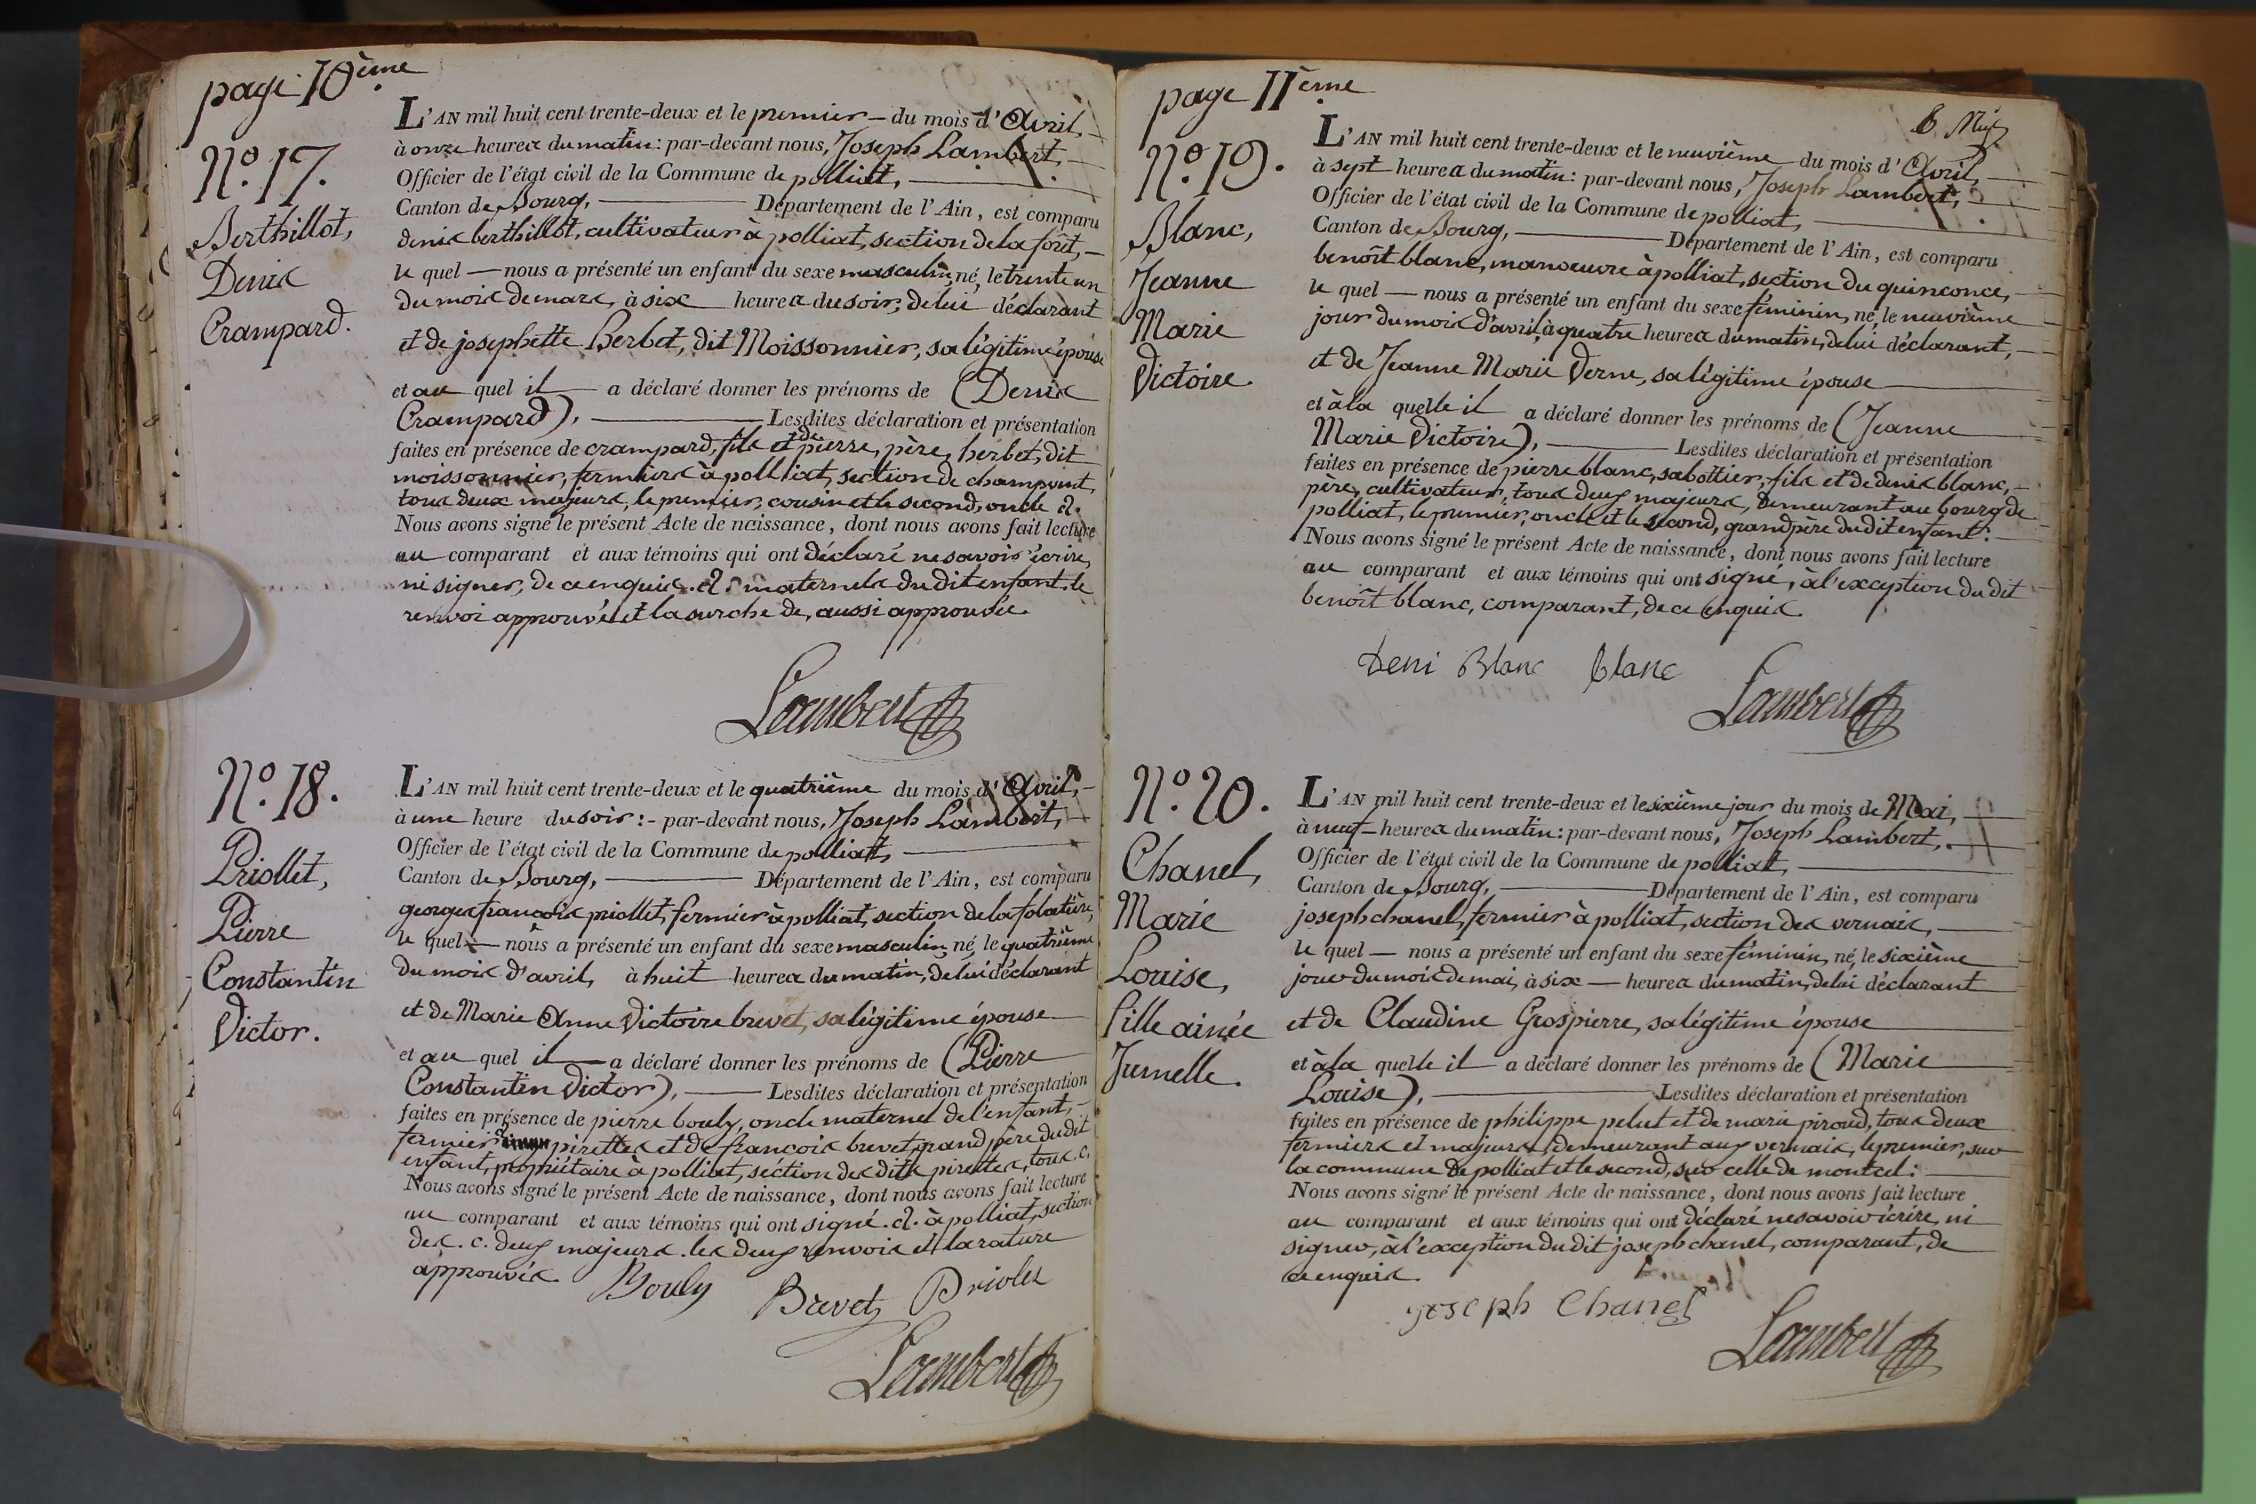 page 10ème
N.º 17.
Berthillot,
Denis
Crampard.
L'AN mil huit cent trente-deux et le premier du mois d'Avril,
à onze heures du matin : par-devant nous, Joseph Lambert,
Officier de l'état civil de la Commune de polliat,
Canton de Bourg, Département de l'Ain, est comparu
denis berthillot, cultivateur à polliat, section de la forêt,
le quel nous a présenté un enfant du sexe masculin, né, le trente un
du mois de mars, à six heures du soir, de lui déclarant
et de josephette Berbet, dit Moissonnier, sa légitime épouse
et au quel il a déclaré donner les prénoms de (Denis
Crampard), Lesdites déclaration et présentation
faites en présence de crampard, fils et de pierre, père, herbet, dit
moissonnier, fermiers à polliat, section de champvent,
tous deux majeurs, le premier, cousin et le second, oncle
Nous avons signé le présent Acte de naissance, dont nous avons fait lecture
au comparant et aux témoins qui ont déclaré ne savoir écrire,
ni signer, de ce enquis. maternels du dit enfant. le
renvoi approuvé et la surche de, aussi approuvée
Lambert
N.º 18.
Priollet,
Pierre
Constantin
Victor.
L'AN mil huit cent trente-deux et le quatrième du mois d'Avril,
à une heure du soir : par-devant nous, Joseph Lambert,
Officier de l'état civil de la Commune de polliat,
Canton de Bourg, Département de l'Ain, est comparu
georges françois priollet, fermier à polliat, section de la folatière,
le quel nous a présenté un enfant du sexe masculin, né, le quatrième
du mois d'avril, à huit heures du matin, de lui déclarant
et de Marie Anne Victoire brevet, sa légitime épouse
et au quel il a déclaré donner les prénoms de (Pierre
Constantin Victor), Lesdites déclaration et présentation
faites en présence de pierre bouly, oncle maternel de l'enfant,
fermier pirettes et de françois brevet, grand père du dit
enfant, propriétaire à polliat, section des dits pirettes, tous. c.
Nous avons signé le présent Acte de naissance, dont nous avons fait lecture
au comparant et aux témoins qui ont signé. à polliat, section
des. c. deux majeurs. les deux renvois et la rature
approuvés.
Bouly Brevet Priolet
Lambert
page 11ème
N.º 19.
Blanc,
Jeanne
Marie
Victoire.
L'AN mil huit cent trente-deux et le neuvième du mois d'Avril,
à sept heures du matin : par-devant nous, Joseph Lambert,
Officier de l'état civil de la Commune de polliat,
Canton de Bourg, Département de l'Ain, est comparu
benoît blanc, manoeuvre à polliat, section du quinconce,
le quel nous a présenté un enfant du sexe féminin, né, le neuvième
jour du mois d'avril, à quatre heures du matin, de lui déclarant,
et de Jeanne Marie Verne, sa légitime épouse
et à la quelle il a déclaré donner les prénoms de (Jeanne
Marie Victoire), Lesdites déclaration et présentation
faites en présence de pierre blanc, sabottier, fils et de denis blanc,
père, cultivateur, tous deux majeurs, demeurant au bourg de
polliat, le premier, oncle et le second, grand père du dit enfant :
Nous avons signé le présent Acte de naissance, dont nous avons fait lecture
au comparant et aux témoins qui ont signé, à l'exception du dit
benoît blanc, comparant, de ce enquis.
Deni Blanc blanc
Lambert
N.º 20.
Chanel,
Marie
Louise,
fille ainée
Jumelle.
L'AN mil huit cent trente-deux et le sixième jour du mois de Mai,
à neuf heures du matin : par-devant nous, Joseph Lambert,
Officier de l'état civil de la Commune de polliat,
Canton de Bourg, Département de l'Ain, est comparu
joseph chanel, fermier à polliat, section des vernais,
le quel nous a présenté un enfant du sexe féminin, né, le sixième
jour du mois de mai, à six heures du matin, de lui déclarant
et de Claudine Grospierre, sa légitime épouse
et à la quelle il a déclaré donner les prénoms de (Marie
Louise), Lesdites déclaration et présentation
faites en présence de philippe pelut et de marie piroud, tous deux
fermiers et majeurs, demeurant aux vernais, le premier, sur
la commune de polliat et le second, sur celle de montcet :
Nous avons signé le présent Acte de naissance, dont nous avons fait lecture
au comparant et aux témoins qui ont déclaré ne savoir écrire, ni
signer, à l'exception du dit joseph chanel, comparant, de
ce enquis.
joseph Chanel
Lambert